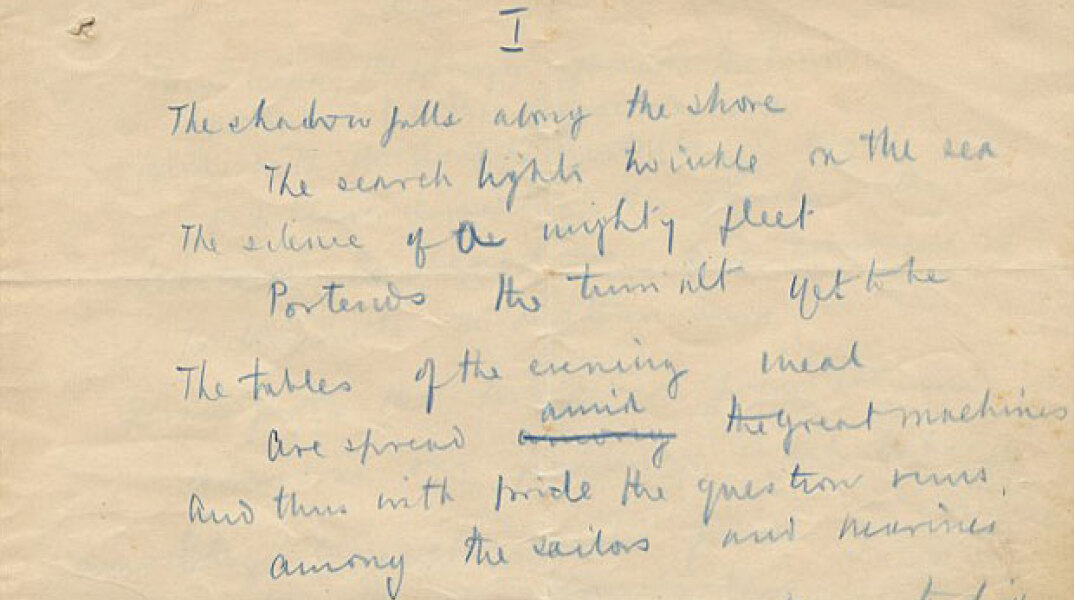 I
The shadow falls along the shore
The search lights twinkle on the sea
The silence of a mighty fleet
Portends the tumult yet to be
The tables of the evening meal
amid
Are spread among the great machines
And thus with pride the question runs
Among the sailors and marines